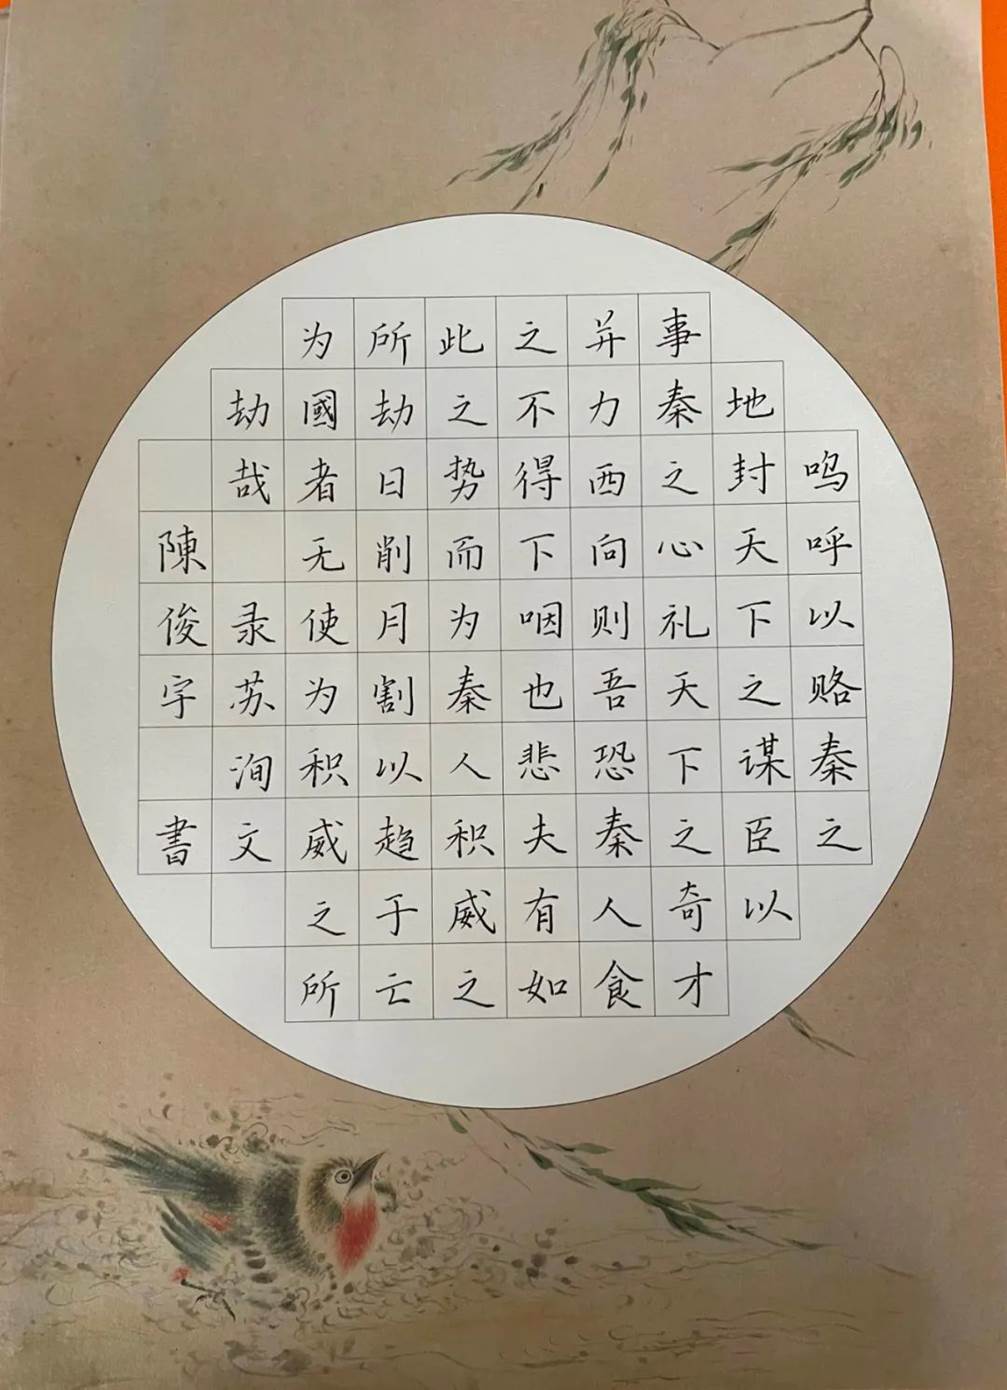 呜呼以赂秦之
地封天下之谋臣以
事秦之心礼天下之奇才
并力西向则吾恐秦人食
之不得下咽也悲夫有如
此之势而为秦人积威之
所劫日削月割以趋于亡
为國者无使为积威之所
劫哉录苏洵文
陳俊宇書